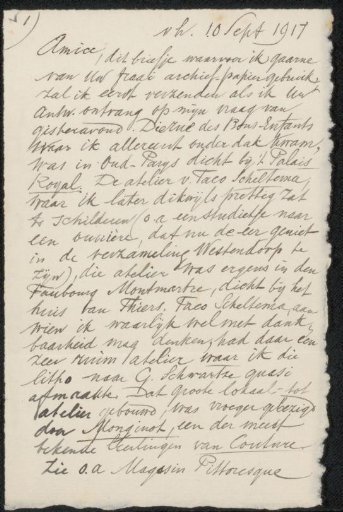 1)
v.h. 10 Sept 1917
Amice, dit briefje waarvoor ik gaarne
van Uw fraai archief-papier gebruik
zal ik eerst verzenden als ik Uw
Antw. ontvang op mijn vraag van
gisterenavond. Die rue des Bons-Enfants
waar ik allereerst onder dak kwam,
was in Oud-Parys dicht bij 't Palais
Royal. De atelier v. Taco Scheltema,
waar ik later dikwijls prettig zat
te schilderen (o a een studietje naar
een ouvrière, dat nu de eer geniet
in de verzameling Westendorp te
zijn), die atelier was ergens in den
Faubourg Montmartre, dicht bij het
huis van Thiers. Taco Scheltema, aan
wien ik waarlijk wel met dank-
baarheid mag denken, had daar een
zeer ruim atelier waar ik die
litho naar G. Schwartze quasi
afmaakte. Dat groote lokaal - tot
atelier gebouwd, was vroeger gebezigd
door Monginot, een der meest
bekende leerlingen van Couture.
Zie o.a. Magasin Pittoresque